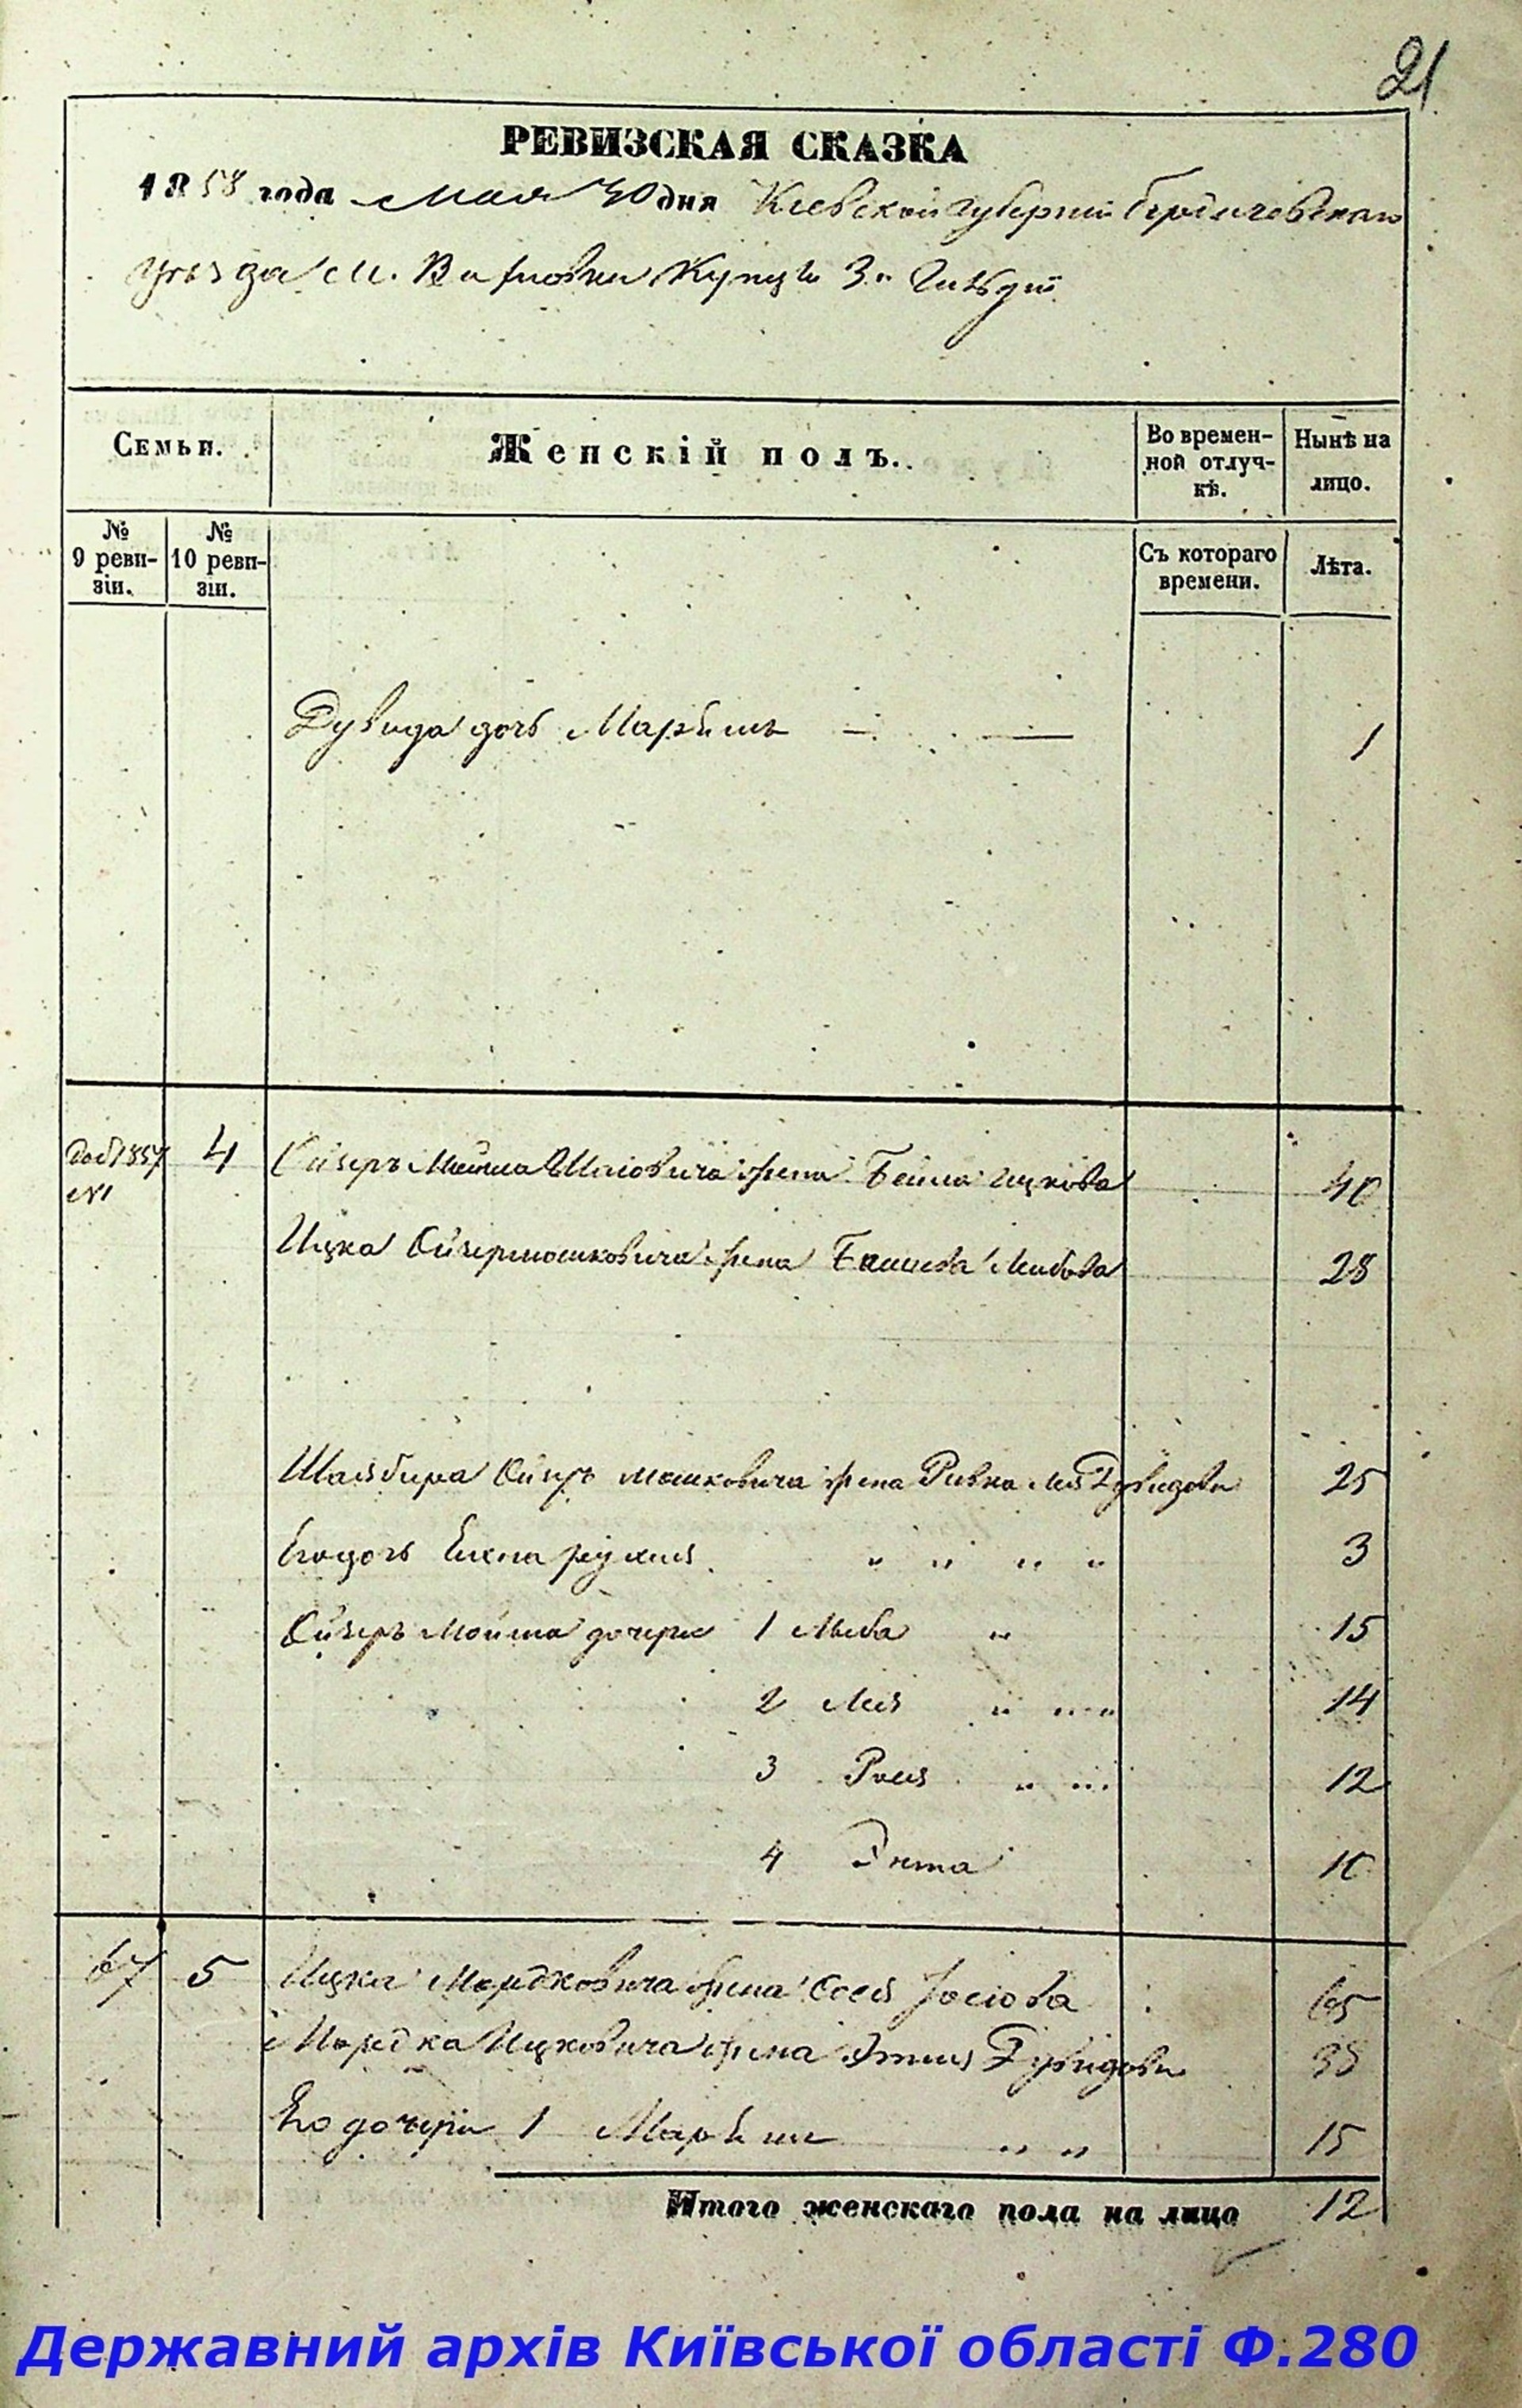 21
РЕВИЗСКАЯ СКАЗКА
1858 года Мая 30 дня Киевской губернии Бердичевскаго
уѣзда м. Купцы 3й Гильдіи
Семьи.
Женскій полъ.
Во времен-
ной отлуч-
кѣ.
Нынѣ на
лицо.
№
9 реви-
зіи.
№
10 реви-
зіи.
Съ котораго
времени.
Лѣта.
Дувида дочь Марьямъ 1
Доб 1857 4 Ойзеръ Мойша жена Бейла Ицкова 40
№1
Ицка Ойзермошковича жена Лейбова 28
Ойзеръ Мошковича жена Ривка Лея Дувидова 25
Его дочь 3
Ойзеръ Мойша дочери 1 Люба " 15
2 Лея " " " 14
3 Рося " " " 12
4 Энта 10
67 5 Ицка Мордковича жена Сося Іосіова 65
Мордка Ицковича жена Дувидова 38
Его дочери 1 Марьям " " 15
Итого женскаго пола на лицо 12
Державний архів Київської області Ф.280